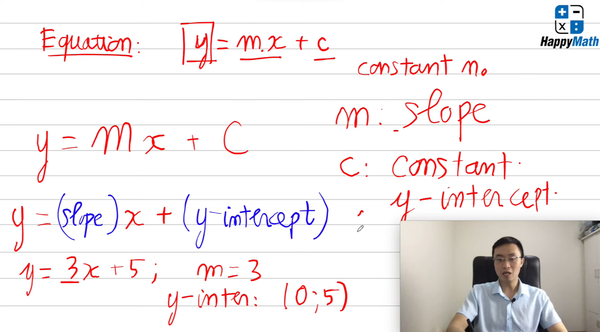 Equation: y = m.x + c
HappyMath
constant no
y = mx + C
m: slope
C: constant.
y-intercept.
y = (slope)x + (y-intercept) ;
y = 3x + 5; m = 3
y-inter: (0;5)